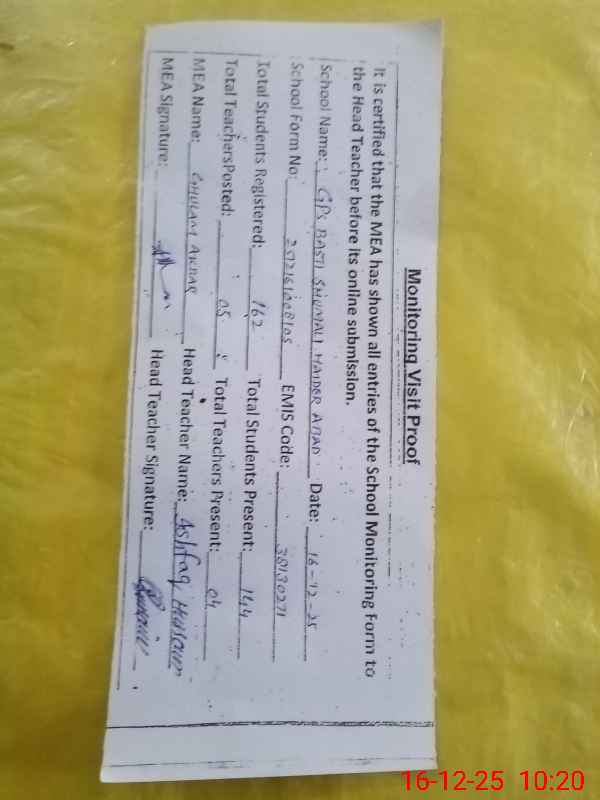 Monitoring Visit Proof
It is certified that the MEA has shown all entries of the School Monitoring Form to
the Head Teacher before its online submission.
School Name: GPS BASTI SHUMALI HAIDER ABAD Date: 16-12-25
School Form No: EMIS Code: 38130271
Total Students Registered: 162 Total Students Present: 144
Total Teachers Posted: 05 Total Teachers Present: 04
MEA Name: GHULAM AKBAR Head Teacher Name: Ashfaq Hussain
MEA Signature: Head Teacher Signature:
16-12-25 10:20